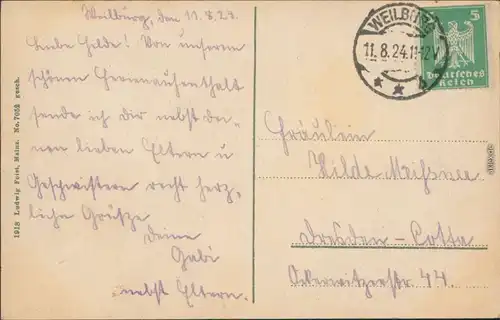 Weilburg, den 11.8.24.
Liebe Hilde! Von unserem
schönen Ferienaufenthalt
sende ich dir nebst dei-
nen lieben Eltern u
Geschwistern recht herz-
liche Grüsse
Deine
Gabi
nebst Eltern.
1918 Ludwig Feist, Mainz. No. 7052 gesch.
WEILBURG
11.8.24.11-12V
5
Deutsches
Reich
Fräulein
Hilde Meissner
Dresden-Cotta
Ockerwitzerstr 44.